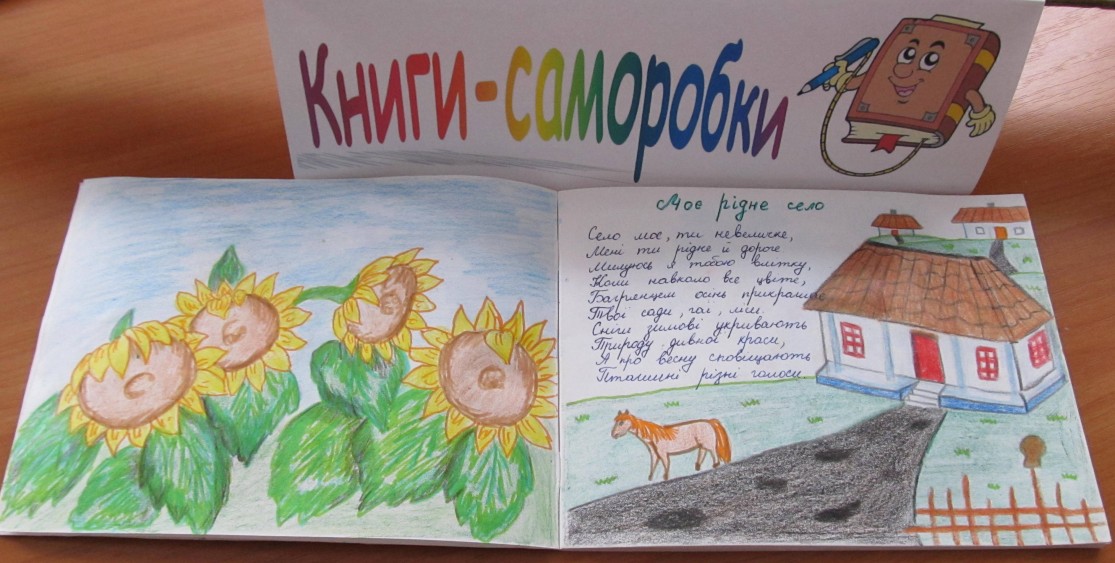 Книги-саморобки
Моє рідне село
Село моє, ти невеличке,
Мені ти рідне й дороге
Милуюсь я тобою влітку,
Коли навколо все цвіте,
Багрянцем осінь прикрашає
Твої сади, гаї, ліси.
Сніги зимові укривають
Природу дивної краси,
А про весну сповіщають
Пташині різні голоси